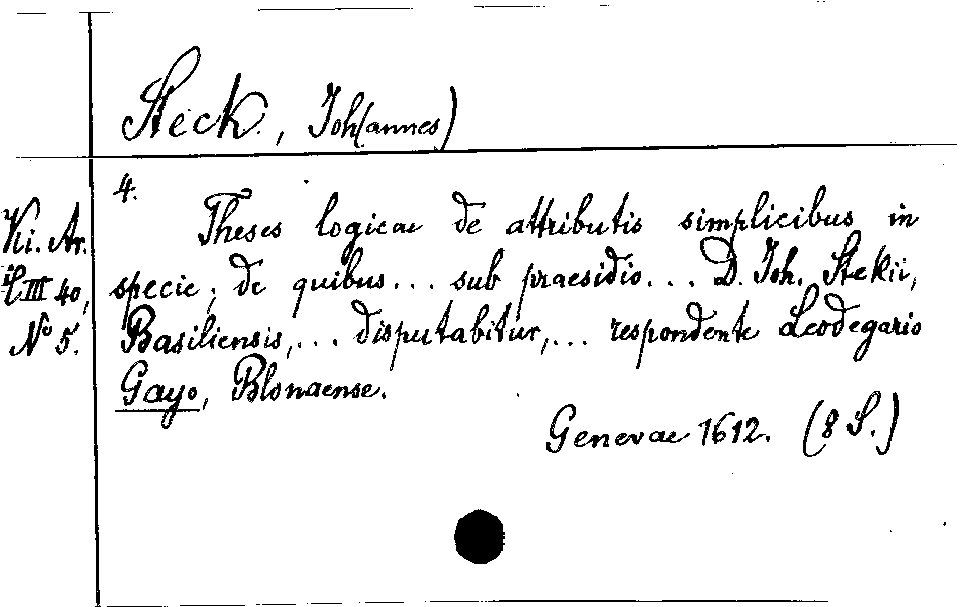 Steck, Joh(annes)
4.
Ki. Ar.
C III 40,
No 5.
Theses logicae de attributis simplicibus in
specie, de quibus... sub praesidio... D. Joh. Stekii,
Basiliensis,... disputabitur,... respondente Leodegario
Gayo, Blonaense.
Genevae 1612. (8 S.)